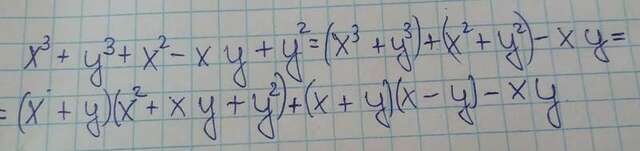 x³ + y³ + x² - x y + y² = (x³ + y³) + (x² + y²) - x y =
= (x + y)(x² + x y + y²) + (x + y)(x - y) - x y